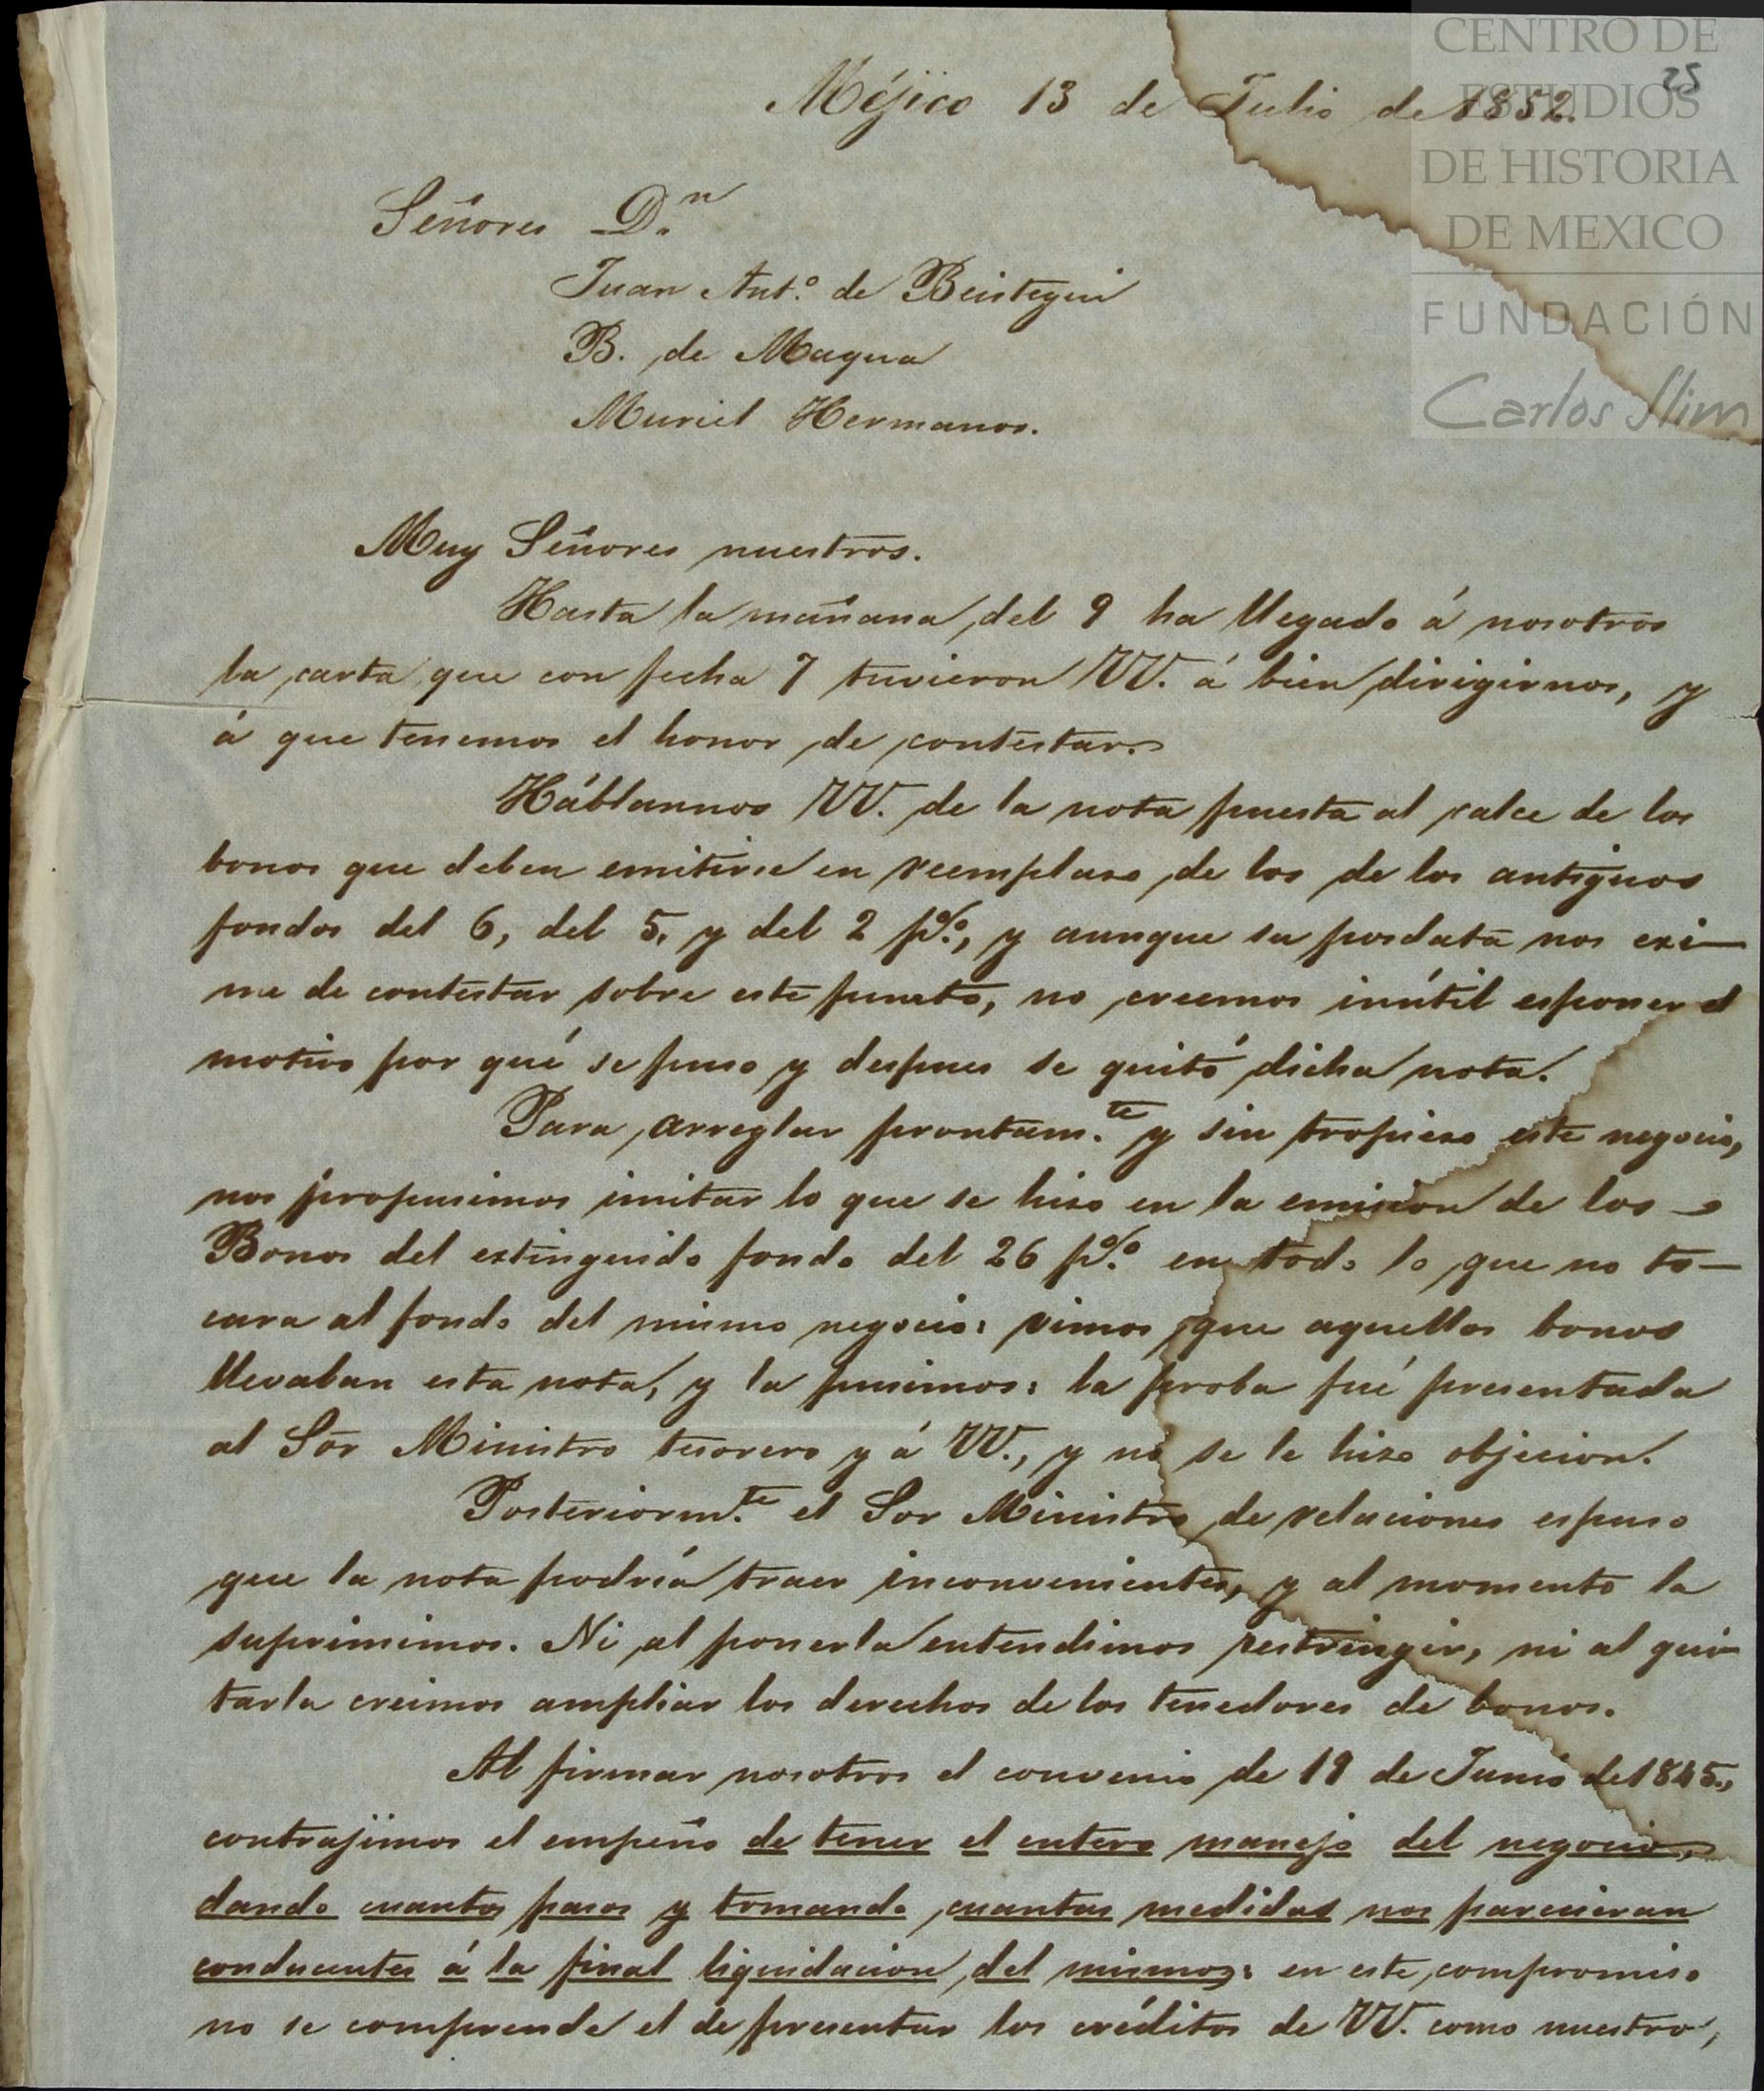 CENTRO DE
ESTUDIOS
DE HISTORIA
DE MEXICO
FUNDACIÓN
Carlos Slim
25
Méjico 13 de Julio de 1852.
Señores D.n
Juan Ant.o de Beistegui
B. de Maqua
Muriel Hermanos.
Muy Señores nuestros.
Hasta la mañana del 9 ha llegado á nosotros
la carta que con fecha 7 tuvieron VV. á bien dirigirnos, y
á que tenemos el honor de contestar.
Háblannos VV. de la nota puesta al calce de los
bonos que deben emitirse en reemplaso de los de los antiguos
fondos del 6, del 5, y del 2 p%, y aunque su posdata nos exi—
me de contestar sobre este punto, no creemos inútil esponer el
motivo por qué se puso y despues se quitó dicha nota.
Para arreglar prontam.te y sin tropieso este negocio,
nos propusimos imitar lo que se hiso en la emision de los
Bonos del extinguido fondo del 26 p% en todo lo que no to—
cara al fondo del mismo negocio: vimos que aquellos bonos
llevaban esta nota, y la pusimos: la proba fué presentada
al Sõr Ministro tesorero y á VV., y no se le hizo objecion.
Posteriorm.te el Sor Ministro de relaciones espuso
que la nota podría traer inconvenientes, y al momento la
suprimimos. Ni al ponerla entendimos restringir, ni al qui-
tarla creimos ampliar los derechos de los tenedores de bonos.
Al firmar nosotros el convenio de 19 de Junio de 1845,
contrajimos el empeño de tener el entero manejo del negocio,
dando cuantos pasos y tomando cuantas medidas nos parecieran
conducentes á la final liquidacion del mismo: en este compromiso
no se comprende el de presentar los créditos de VV. como nuestros,